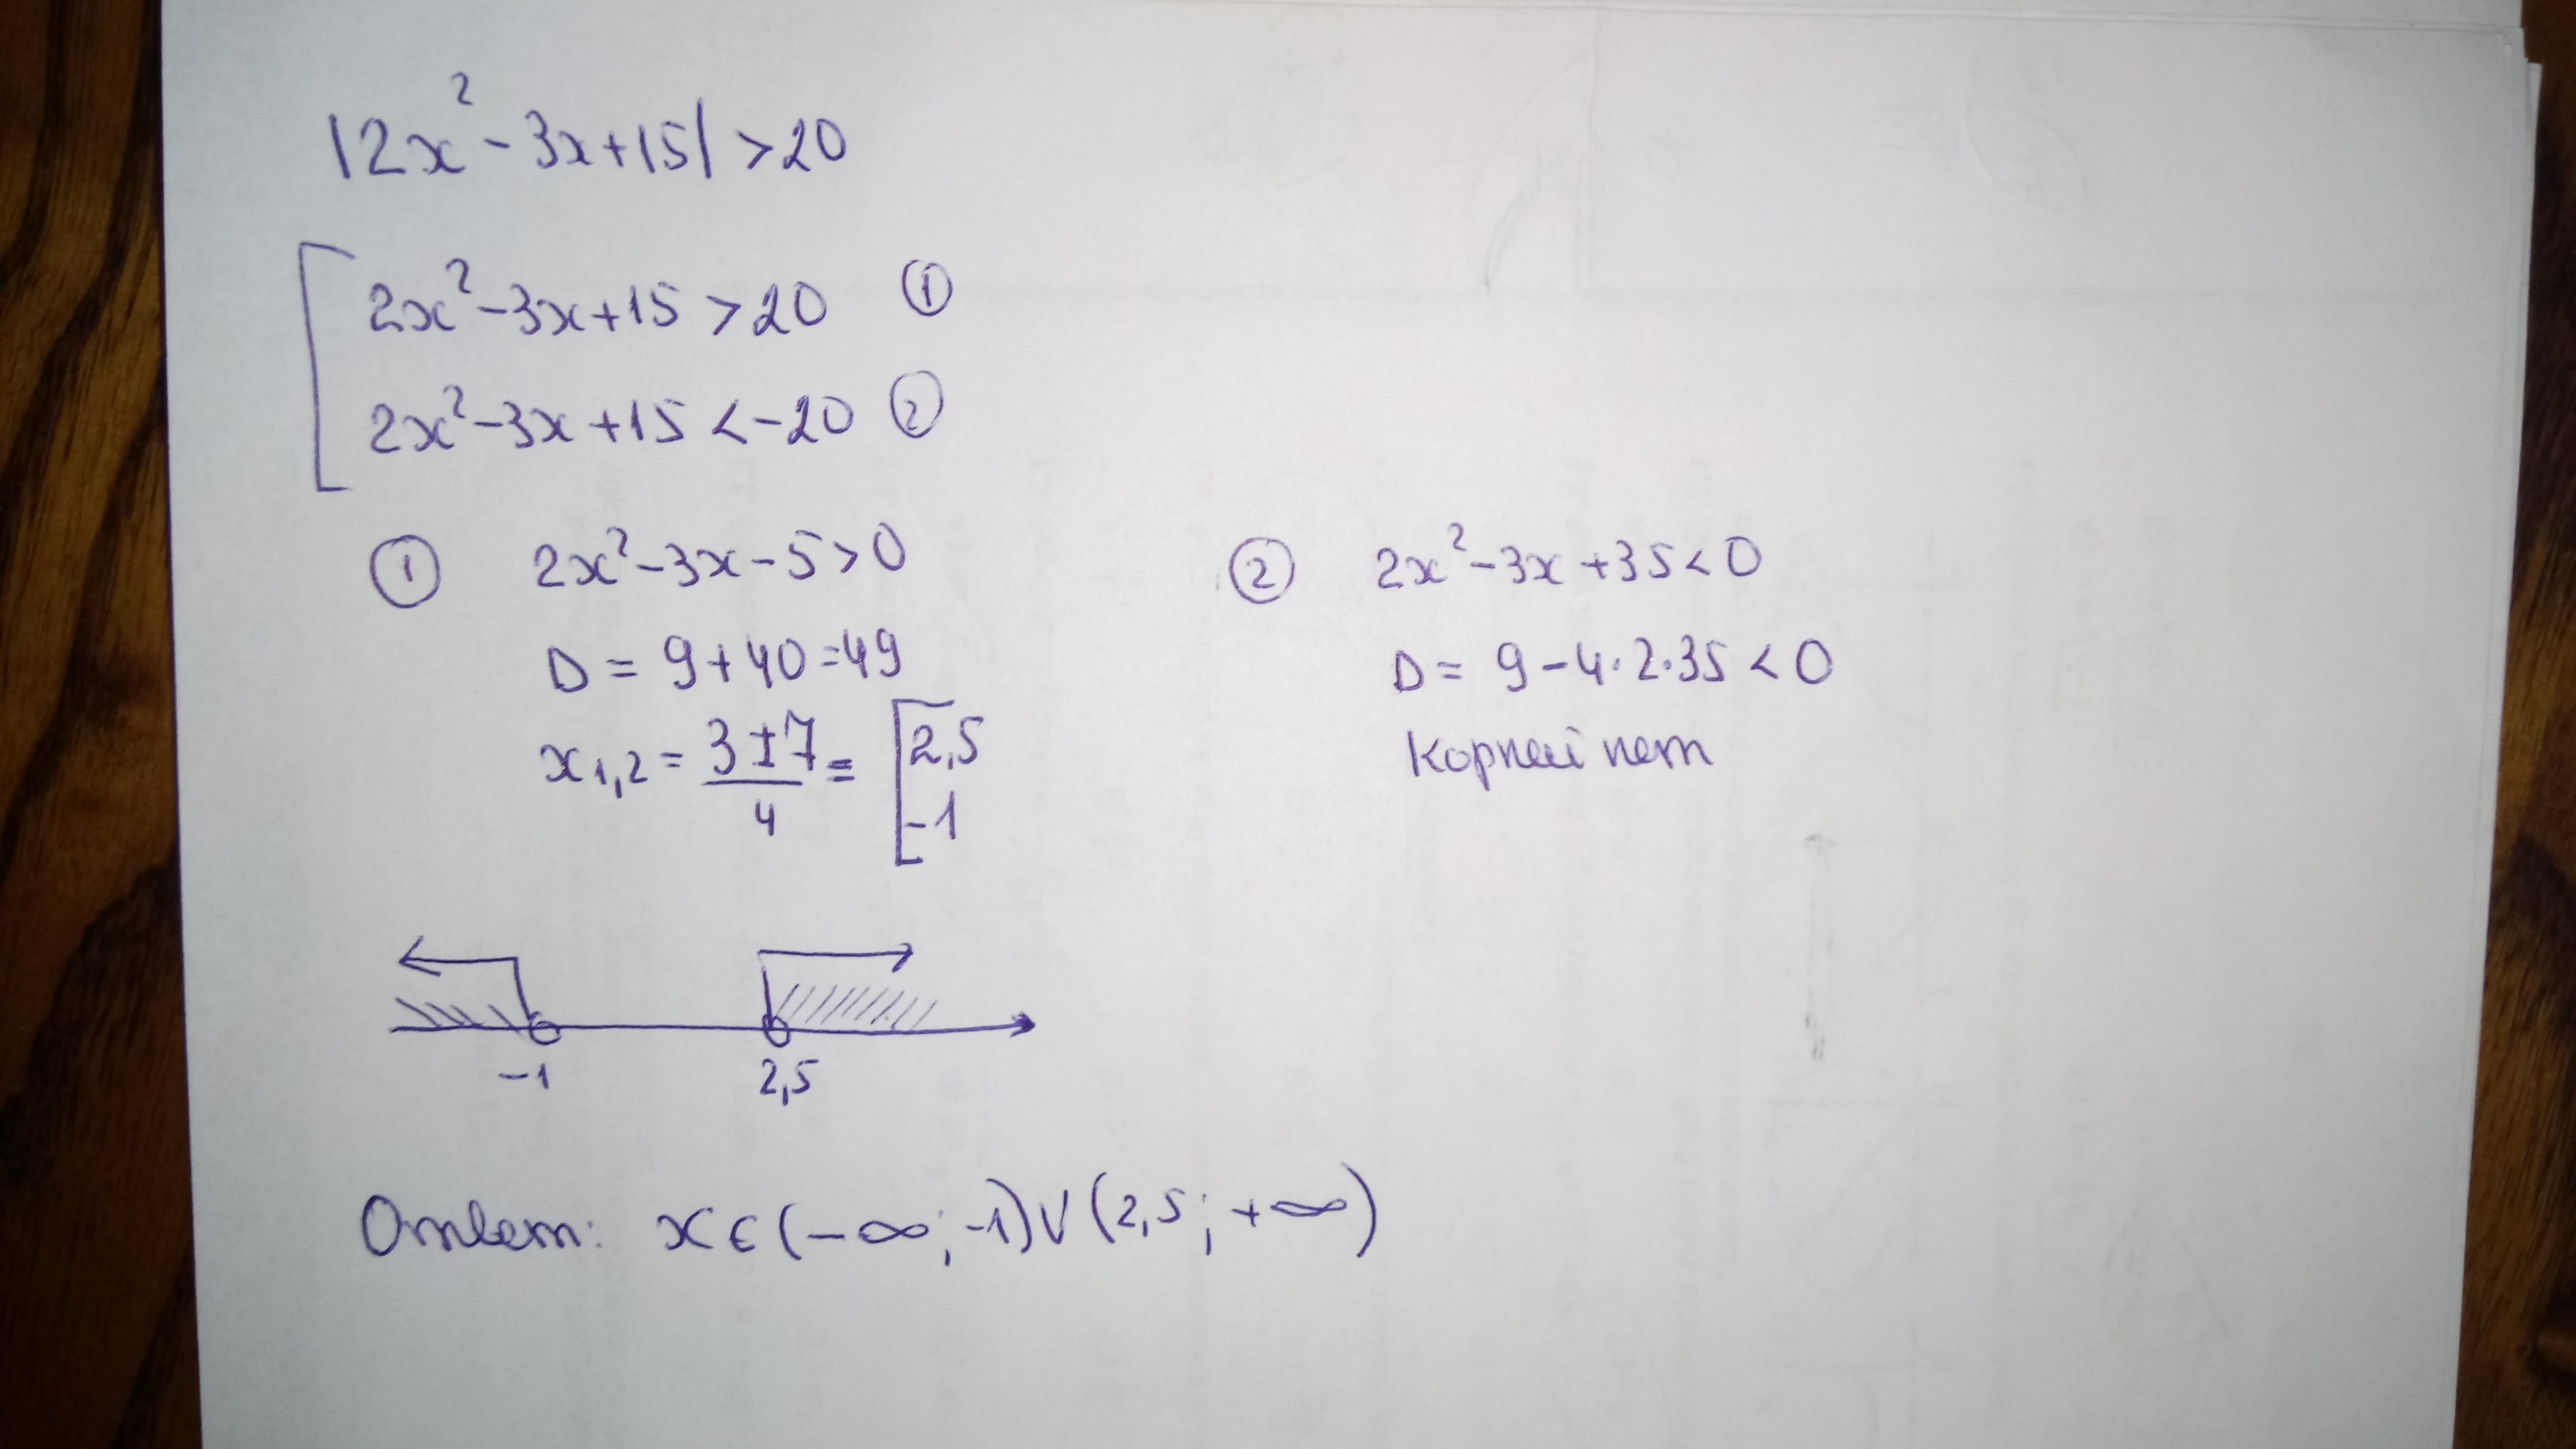 |2x²-3x+15|>20
2x²-3x+15>20 ①
2x²-3x+15<-20 ②
① 2x²-3x-5>0
D=9+40=49
x1,2=(3±7)/4=[2,5
-1
② 2x²-3x+35<0
D=9-4·2·35<0
Корней нет
-1 2,5
Ответ: x∈(-∞;-1)∨(2,5;+∞)